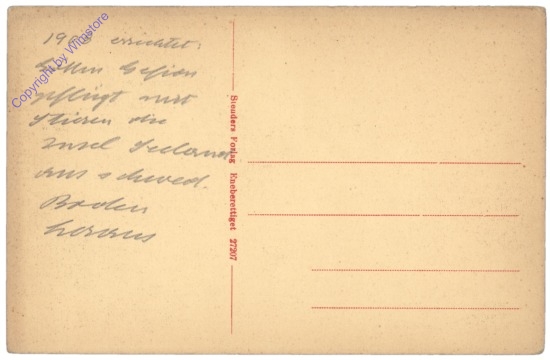 errichtet:
Göttin Gefion
pflügt mit
Stieren die
Insel Seeland
aus schwed.
Boden
heraus
Stenders Forlag Eneberettiget 27207
Copyright by Wimstore